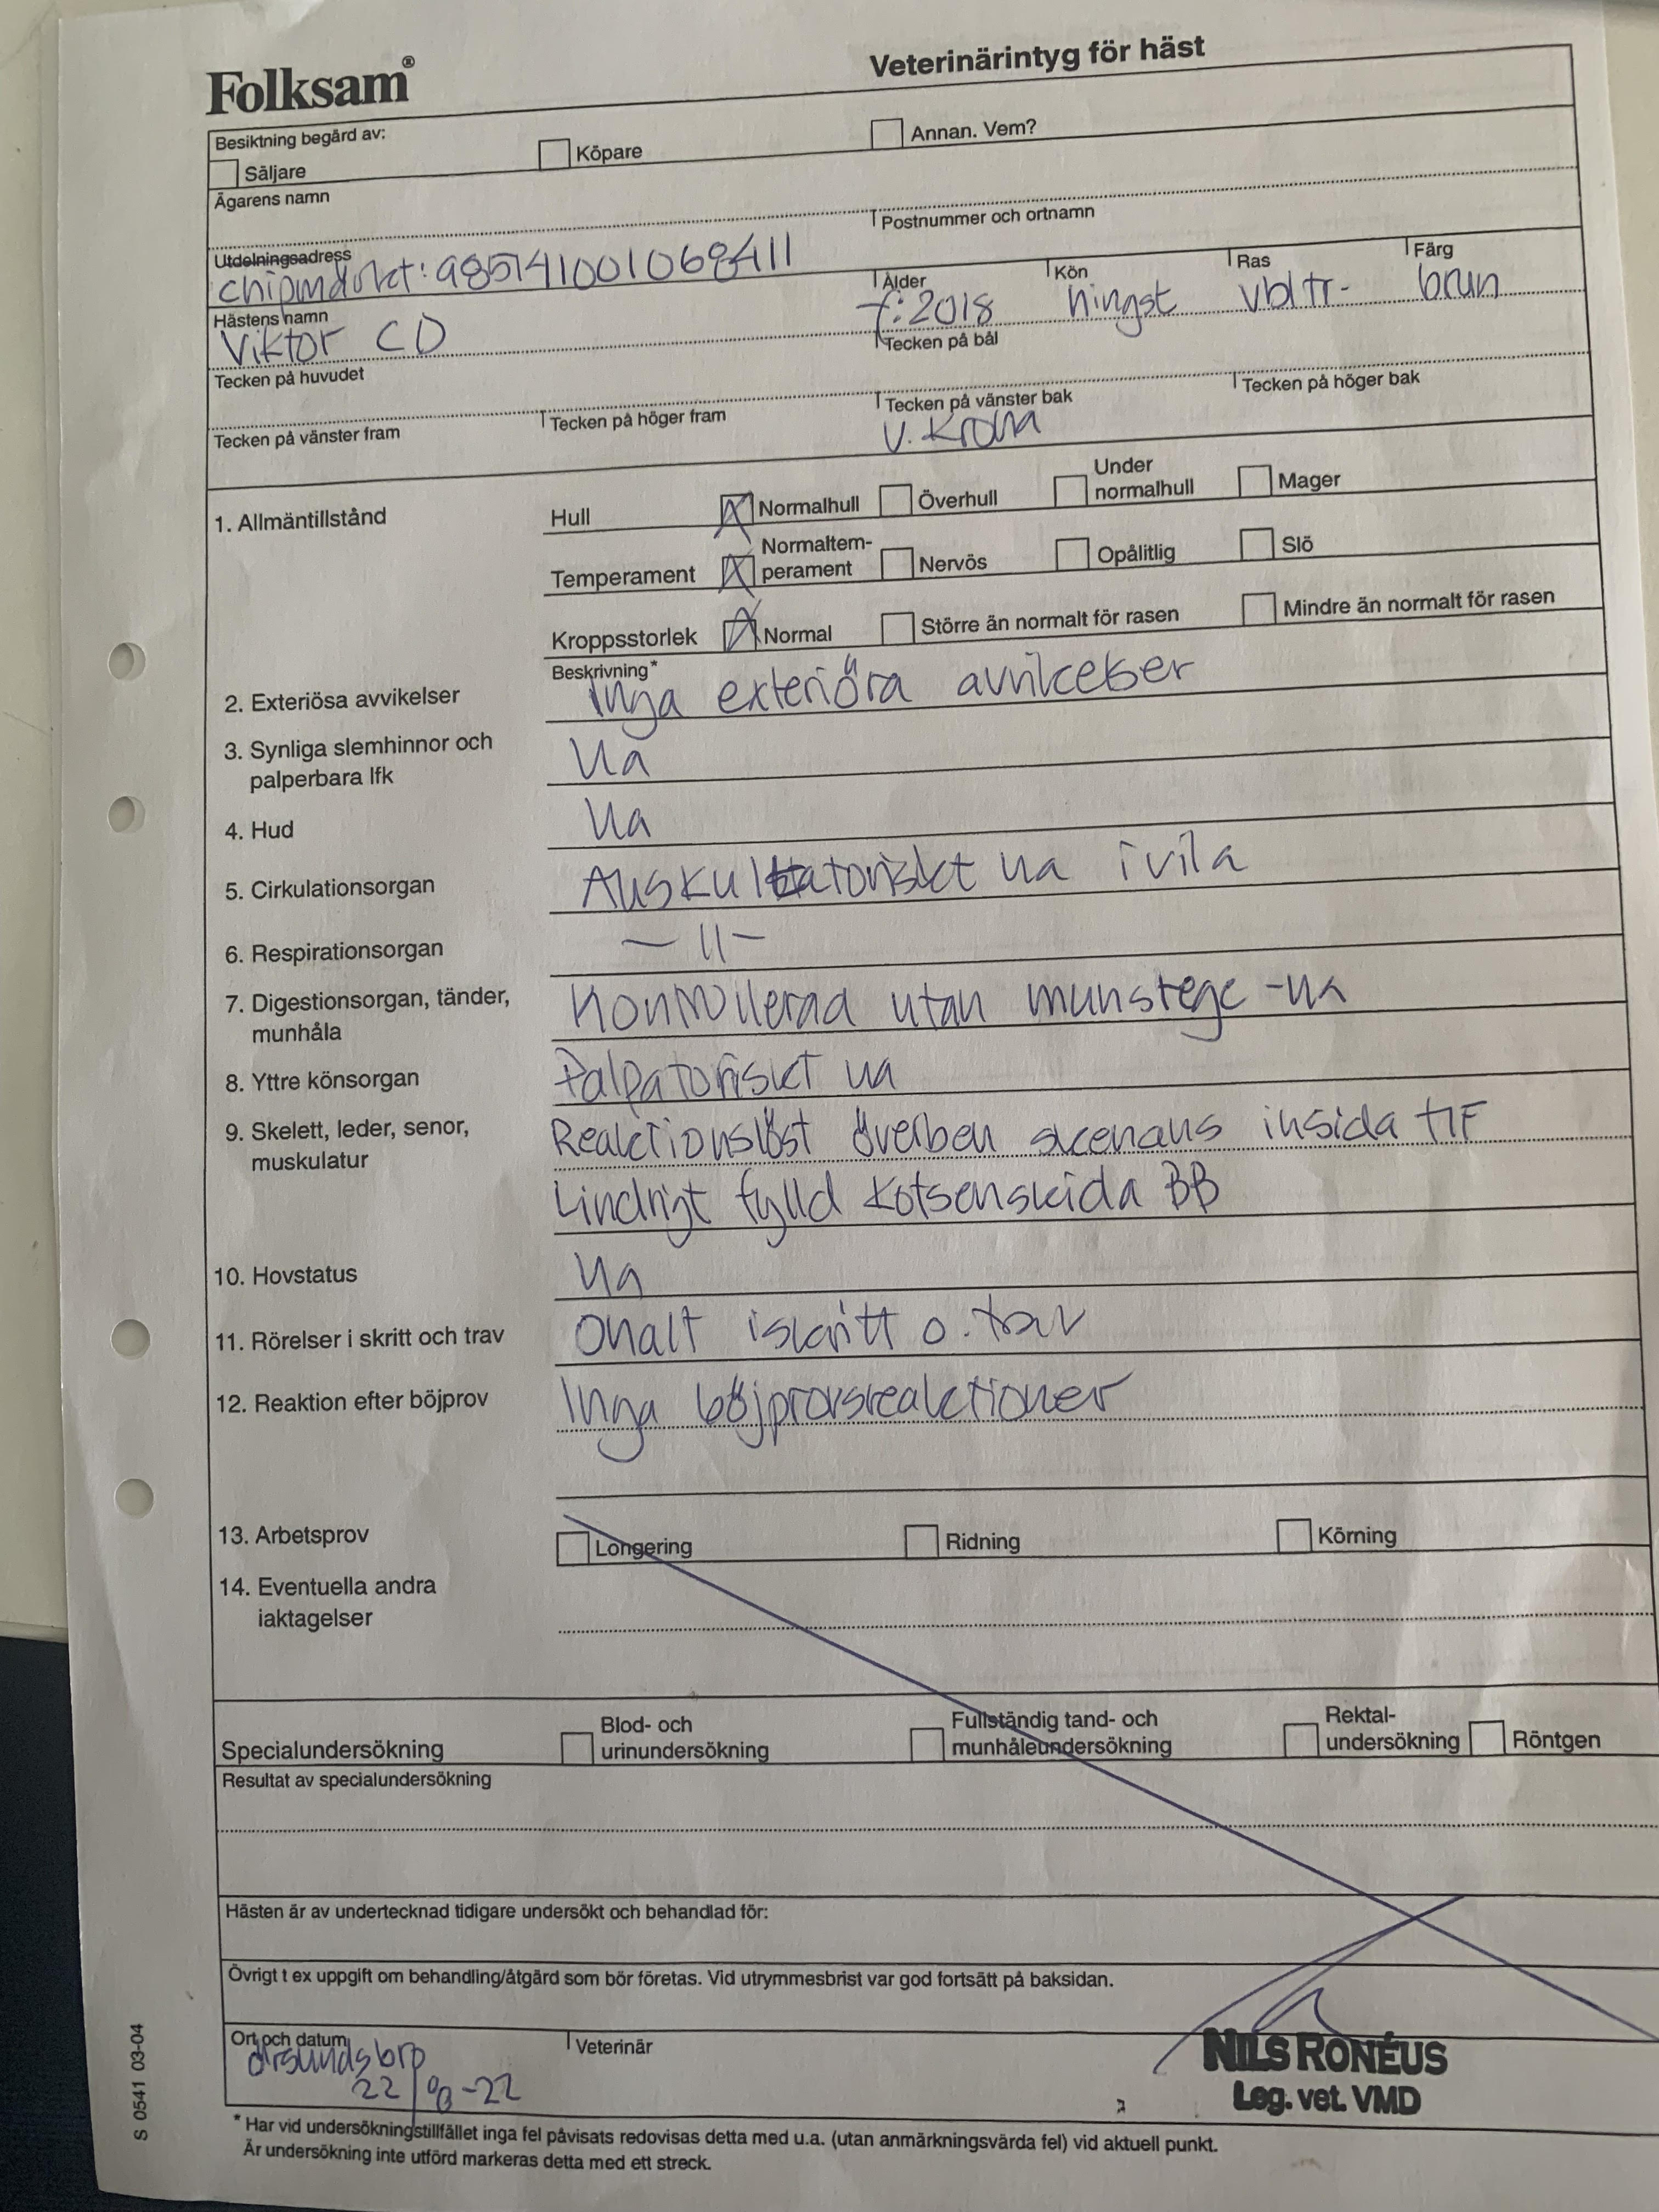 Folksam®
Veterinärintyg för häst
Besiktning begärd av:
Säljare
Köpare
Annan. Vem?
Ägarens namn
Utdelningsadress
Postnummer och ortnamn
chipmärkt: 985141001068411
Hästens namn
Ålder
Kön
Ras
Färg
Viktor CD
f: 2018
hingst
vbltr-
brun
Tecken på huvudet
Tecken på bål
Tecken på vänster fram
Tecken på höger fram
Tecken på vänster bak
Tecken på höger bak
v. krona
1. Allmäntillstånd
Hull
Normalhull
Överhull
Under
normalhull
Mager
Temperament
Normaltem-
perament
Nervös
Opålitlig
Slö
Kroppsstorlek
Normal
Större än normalt för rasen
Mindre än normalt för rasen
Beskrivning*
2. Exteriösa avvikelser
Inga exteriöra avvikelser
3. Synliga slemhinnor och
palperbara lfk
Ua
4. Hud
Ua
5. Cirkulationsorgan
Auskultatoriskt ua i vila
6. Respirationsorgan
— 11 —
7. Digestionsorgan, tänder,
munhåla
Kontrollerad utan munstege - ua
8. Yttre könsorgan
Palpatoriskt ua
9. Skelett, leder, senor,
muskulatur
Reaktionslöst överben skenans insida HF
Lindrigt fylld kotsenskida BB
10. Hovstatus
Ua
11. Rörelser i skritt och trav
Ohalt i skritt o. trav
12. Reaktion efter böjprov
Inga böjprovsreaktioner
13. Arbetsprov
Longering
Ridning
Körning
14. Eventuella andra
iaktagelser
Specialundersökning
Blod- och
urinundersökning
Fullständig tand- och
munhåleundersökning
Rektal-
undersökning
Röntgen
Resultat av specialundersökning
Hästen är av undertecknad tidigare undersökt och behandlad för:
Övrigt t ex uppgift om behandling/åtgärd som bör företas. Vid utrymmesbrist var god fortsätt på baksidan.
Ort och datum
Veterinär
Örsundsbro
22/8-22
NILS RONÉUS
Leg. vet. VMD
* Har vid undersökningstillfället inga fel påvisats redovisas detta med u.a. (utan anmärkningsvärda fel) vid aktuell punkt.
Är undersökning inte utförd markeras detta med ett streck.
S 0541 03-04